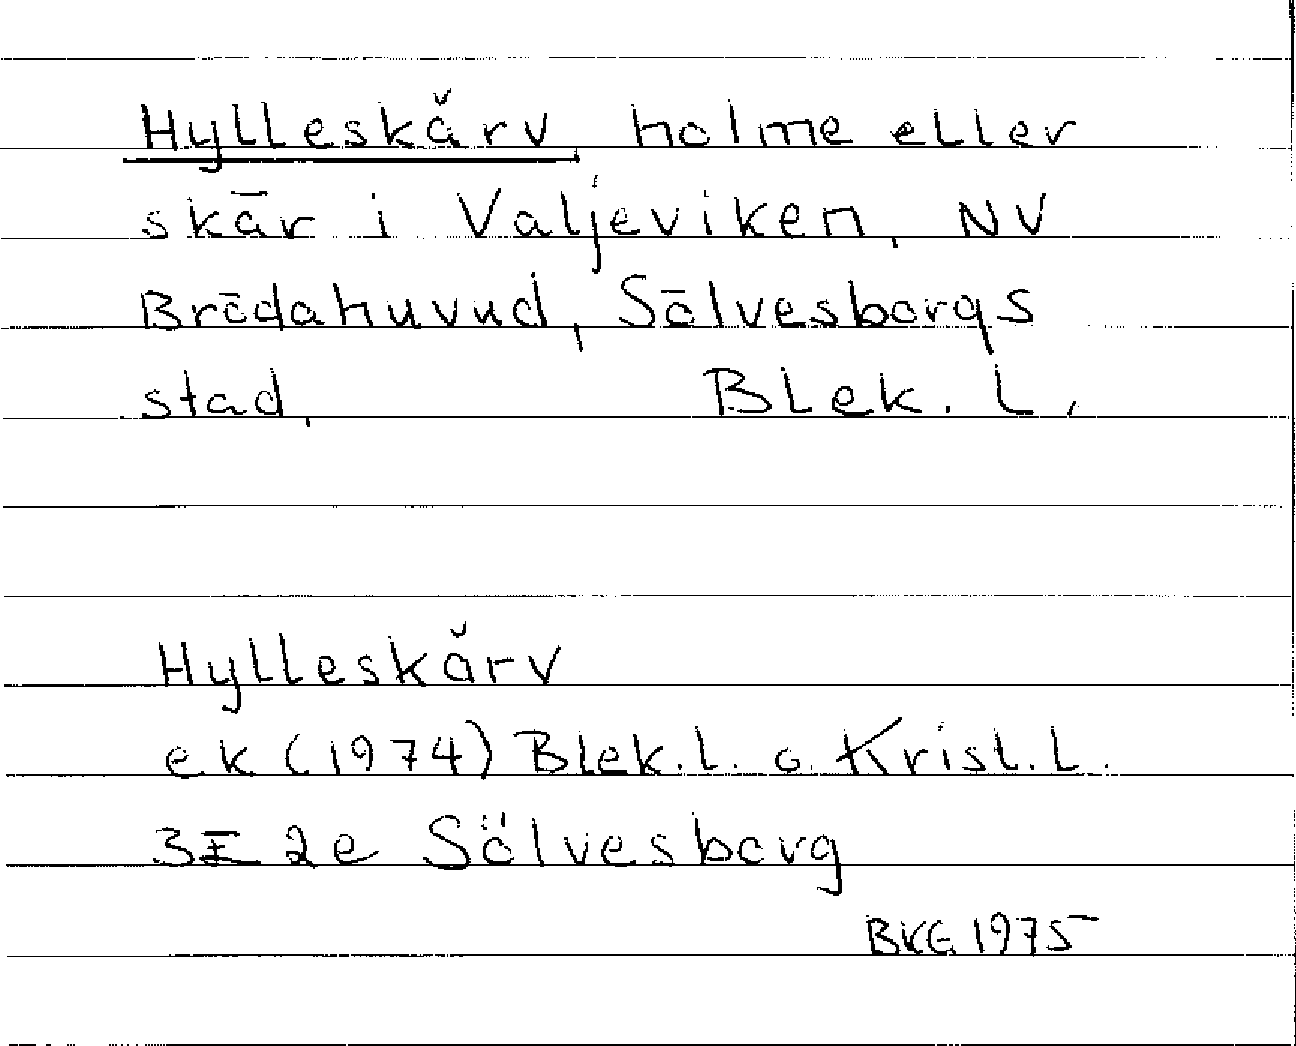 Hylleskärv holme eller
skär i Valjeviken, NV
Brödahuvud, Sölvesborgs
stad, Blek. L.
Hylleskärv
ek (1974) Blek. l. o. Krist. L.
3E 2e Sölvesborg
BKG 1975